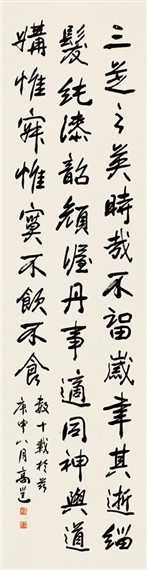 三芝之英時哉不留歲聿其逝緇
髮純漆韶顏渥丹事適同神與道
媾惟寂惟寞不飲不食
數十載於茲
庚申八月高邕